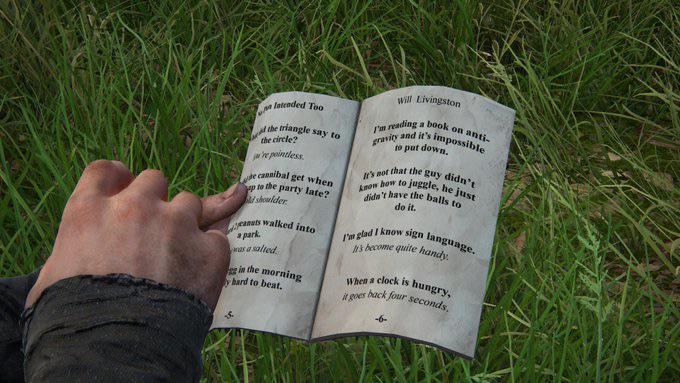 No Pun Intended Too
did the triangle say to
the circle?
You're pointless.
the cannibal get when
up to the party late?
shoulder.
2 peanuts walked into
a park.
was a salted.
in the morning
hard to beat.
-5-
Will Livingston
I'm reading a book on anti-
gravity and it's impossible
to put down.
It's not that the guy didn't
know how to juggle, he just
didn't have the balls to
do it.
I'm glad I know sign language.
It's become quite handy.
When a clock is hungry,
it goes back four seconds.
-6-